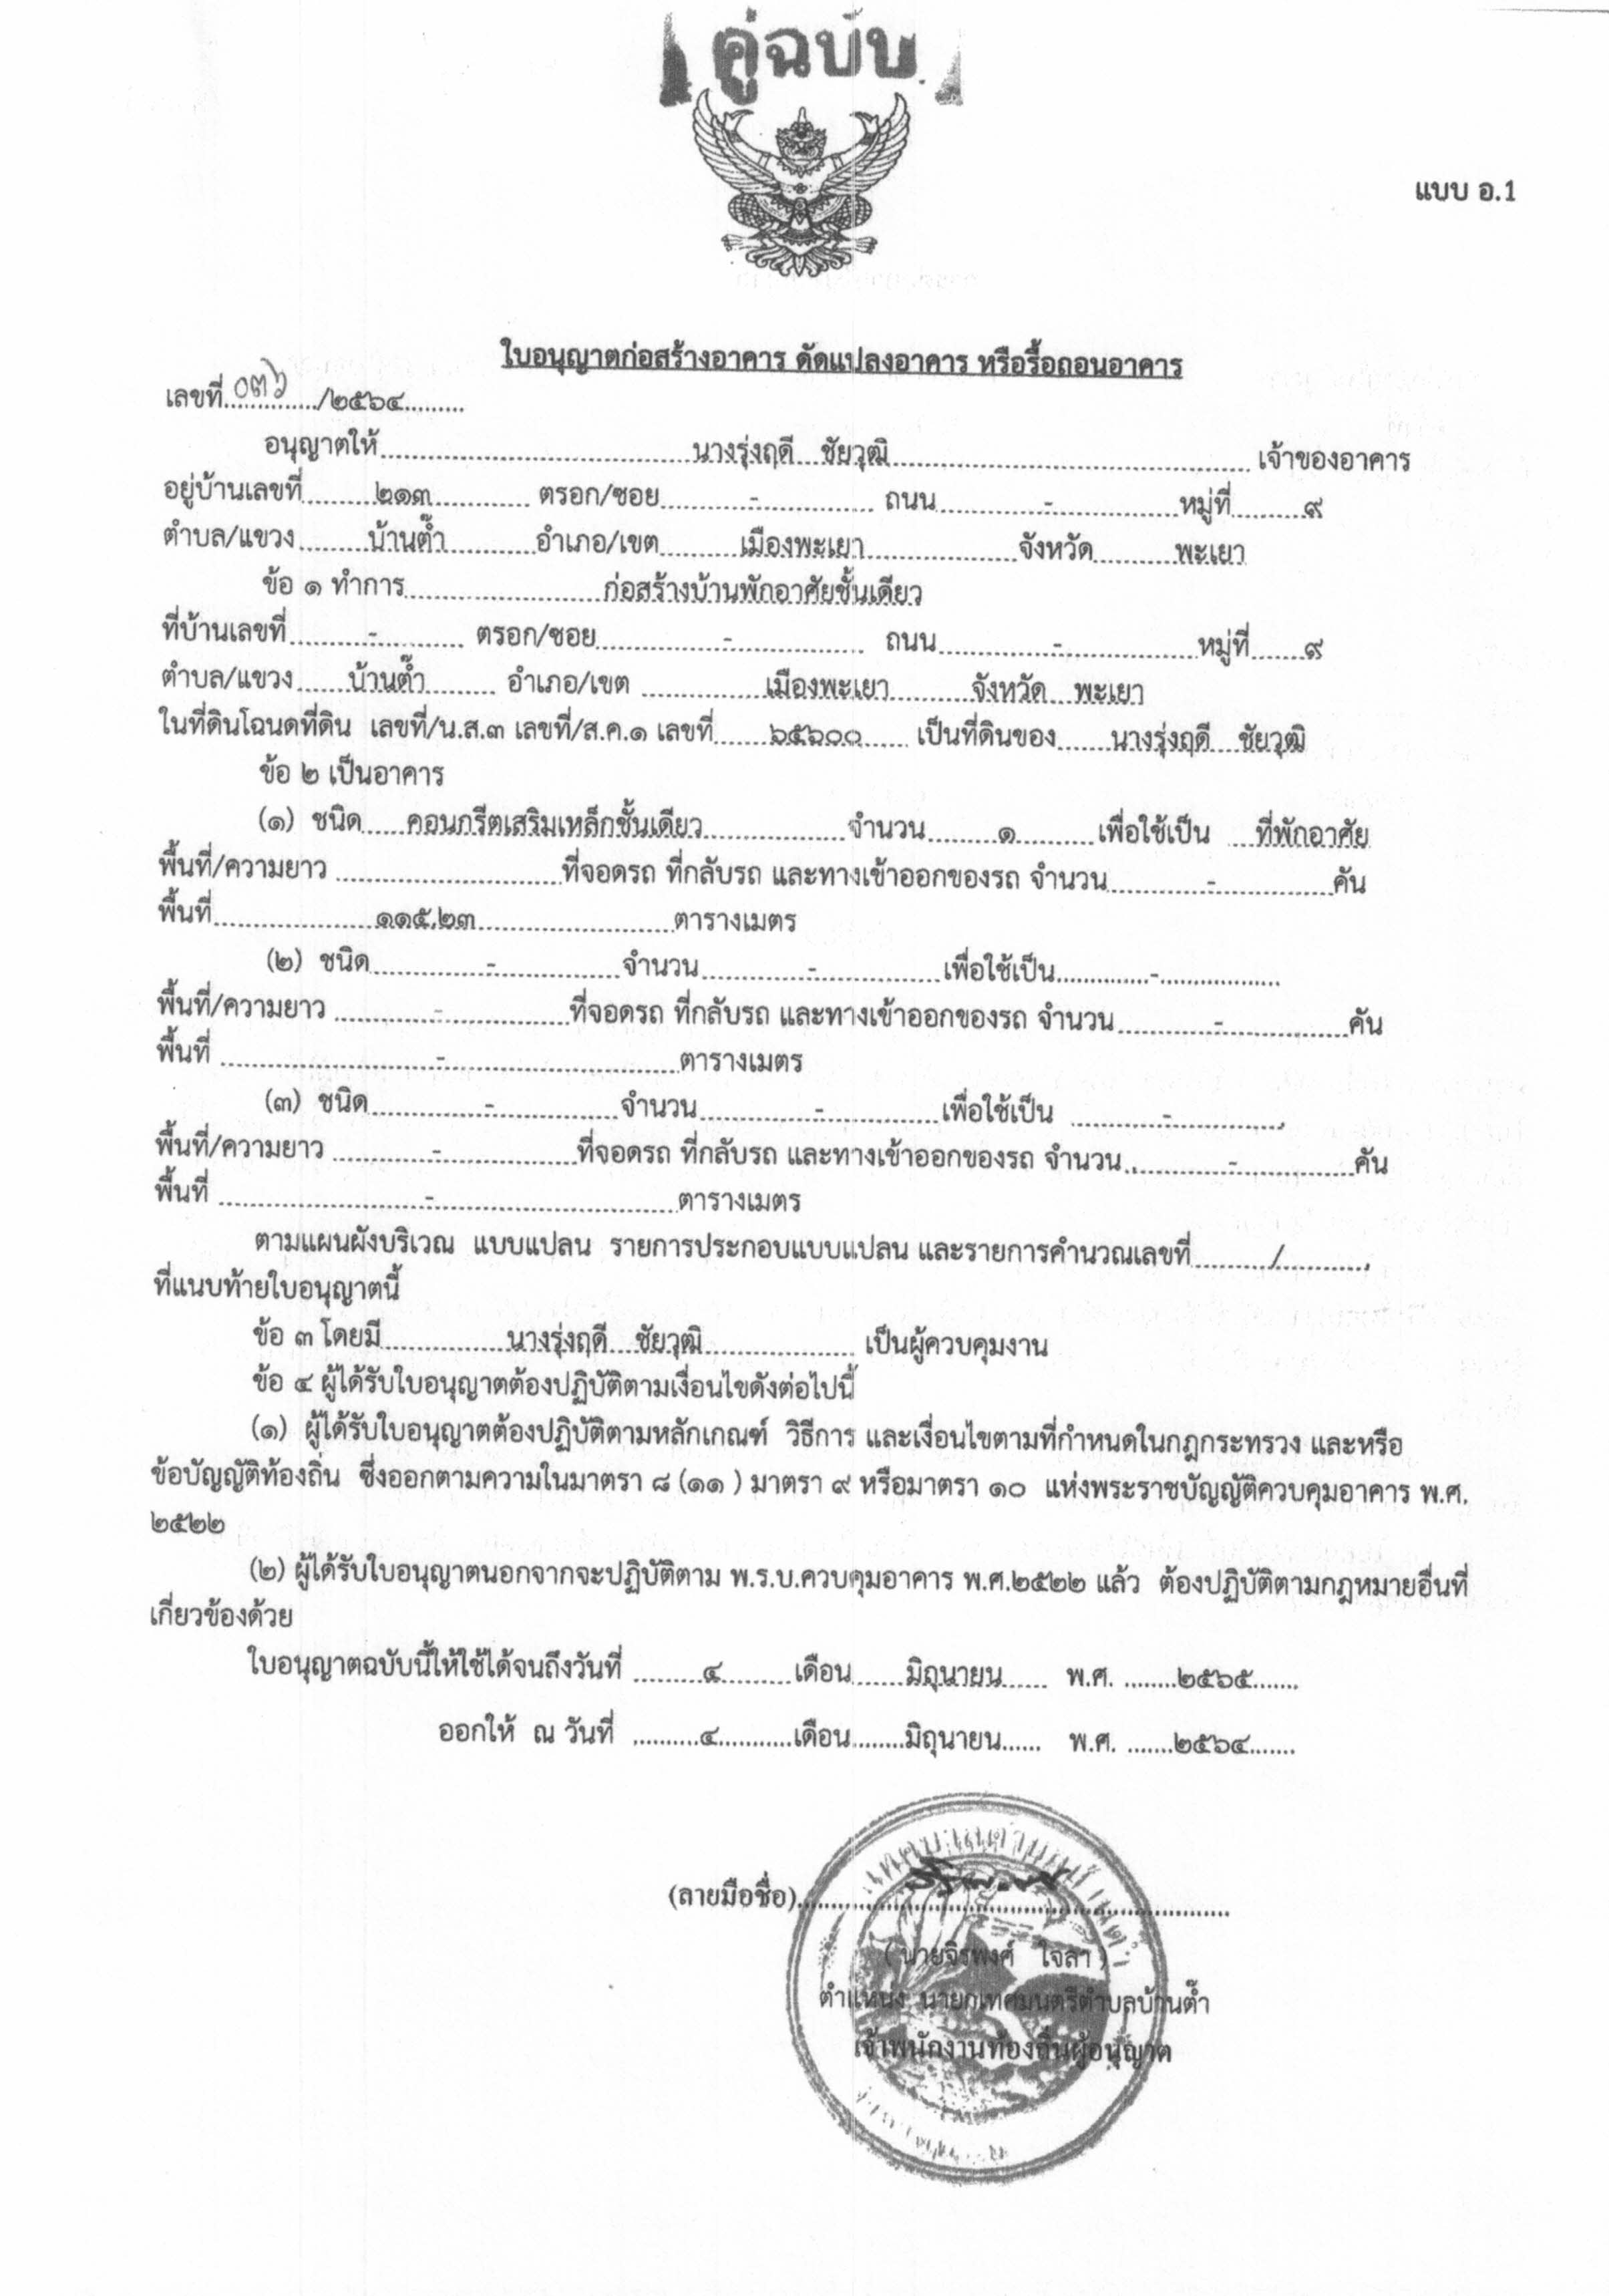 คู่ฉบับ
แบบ อ.1
ใบอนุญาตก่อสร้างอาคาร ดัดแปลงอาคาร หรือรื้อถอนอาคาร
เลขที่ ๐๓๖ /๒๕๖๔
อนุญาตให้ นางรุ่งฤดี ชัยวุฒิ เจ้าของอาคาร
อยู่บ้านเลขที่ ๒๑๓ ตรอก/ซอย - ถนน - หมู่ที่ ๙
ตำบล/แขวง บ้านต๊ำ อำเภอ/เขต เมืองพะเยา จังหวัด พะเยา
ข้อ ๑ ทำการ ก่อสร้างบ้านพักอาศัยชั้นเดียว
ที่บ้านเลขที่ - ตรอก/ซอย - ถนน - หมู่ที่ ๙
ตำบล/แขวง บ้านต๊ำ อำเภอ/เขต เมืองพะเยา จังหวัด พะเยา
ในที่ดินโฉนดที่ดิน เลขที่/น.ส.๓ เลขที่/ส.ค.๑ เลขที่ ๖๕๖๐๐ เป็นที่ดินของ นางรุ่งฤดี ชัยวุฒิ
ข้อ ๒ เป็นอาคาร
(๑) ชนิด คอนกรีตเสริมเหล็กชั้นเดียว จำนวน ๑ เพื่อใช้เป็น ที่พักอาศัย
พื้นที่/ความยาว ที่จอดรถ ที่กลับรถ และทางเข้าออกของรถ จำนวน - คัน
พื้นที่ ๑๑๕.๒๓ ตารางเมตร
(๒) ชนิด - จำนวน - เพื่อใช้เป็น -
พื้นที่/ความยาว - ที่จอดรถ ที่กลับรถ และทางเข้าออกของรถ จำนวน - คัน
พื้นที่ - ตารางเมตร
(๓) ชนิด - จำนวน - เพื่อใช้เป็น -
พื้นที่/ความยาว - ที่จอดรถ ที่กลับรถ และทางเข้าออกของรถ จำนวน - คัน
พื้นที่ - ตารางเมตร
ตามแผนผังบริเวณ แบบแปลน รายการประกอบแบบแปลน และรายการคำนวณเลขที่ /
ที่แนบท้ายใบอนุญาตนี้
ข้อ ๓ โดยมี นางรุ่งฤดี ชัยวุฒิ เป็นผู้ควบคุมงาน
ข้อ ๔ ผู้ได้รับใบอนุญาตต้องปฏิบัติตามเงื่อนไขดังต่อไปนี้
(๑) ผู้ได้รับใบอนุญาตต้องปฏิบัติตามหลักเกณฑ์ วิธีการ และเงื่อนไขตามที่กำหนดในกฎกระทรวง และหรือ
ข้อบัญญัติท้องถิ่น ซึ่งออกตามความในมาตรา ๘ (๑๑ ) มาตรา ๙ หรือมาตรา ๑๐ แห่งพระราชบัญญัติควบคุมอาคาร พ.ศ.
๒๕๒๒
(๒) ผู้ได้รับใบอนุญาตนอกจากจะปฏิบัติตาม พ.ร.บ.ควบคุมอาคาร พ.ศ.๒๕๒๒ แล้ว ต้องปฏิบัติตามกฎหมายอื่นที่
เกี่ยวข้องด้วย
ใบอนุญาตฉบับนี้ให้ใช้ได้จนถึงวันที่ ๔ เดือน มิถุนายน พ.ศ. ๒๕๖๕
ออกให้ ณ วันที่ ๔ เดือน มิถุนายน พ.ศ. ๒๕๖๔
(ลายมือชื่อ)
( นายจิรพงศ์ ใจลา )
ตำแหน่ง นายกเทศมนตรีตำบลบ้านต๊ำ
เจ้าพนักงานท้องถิ่นผู้อนุญาต